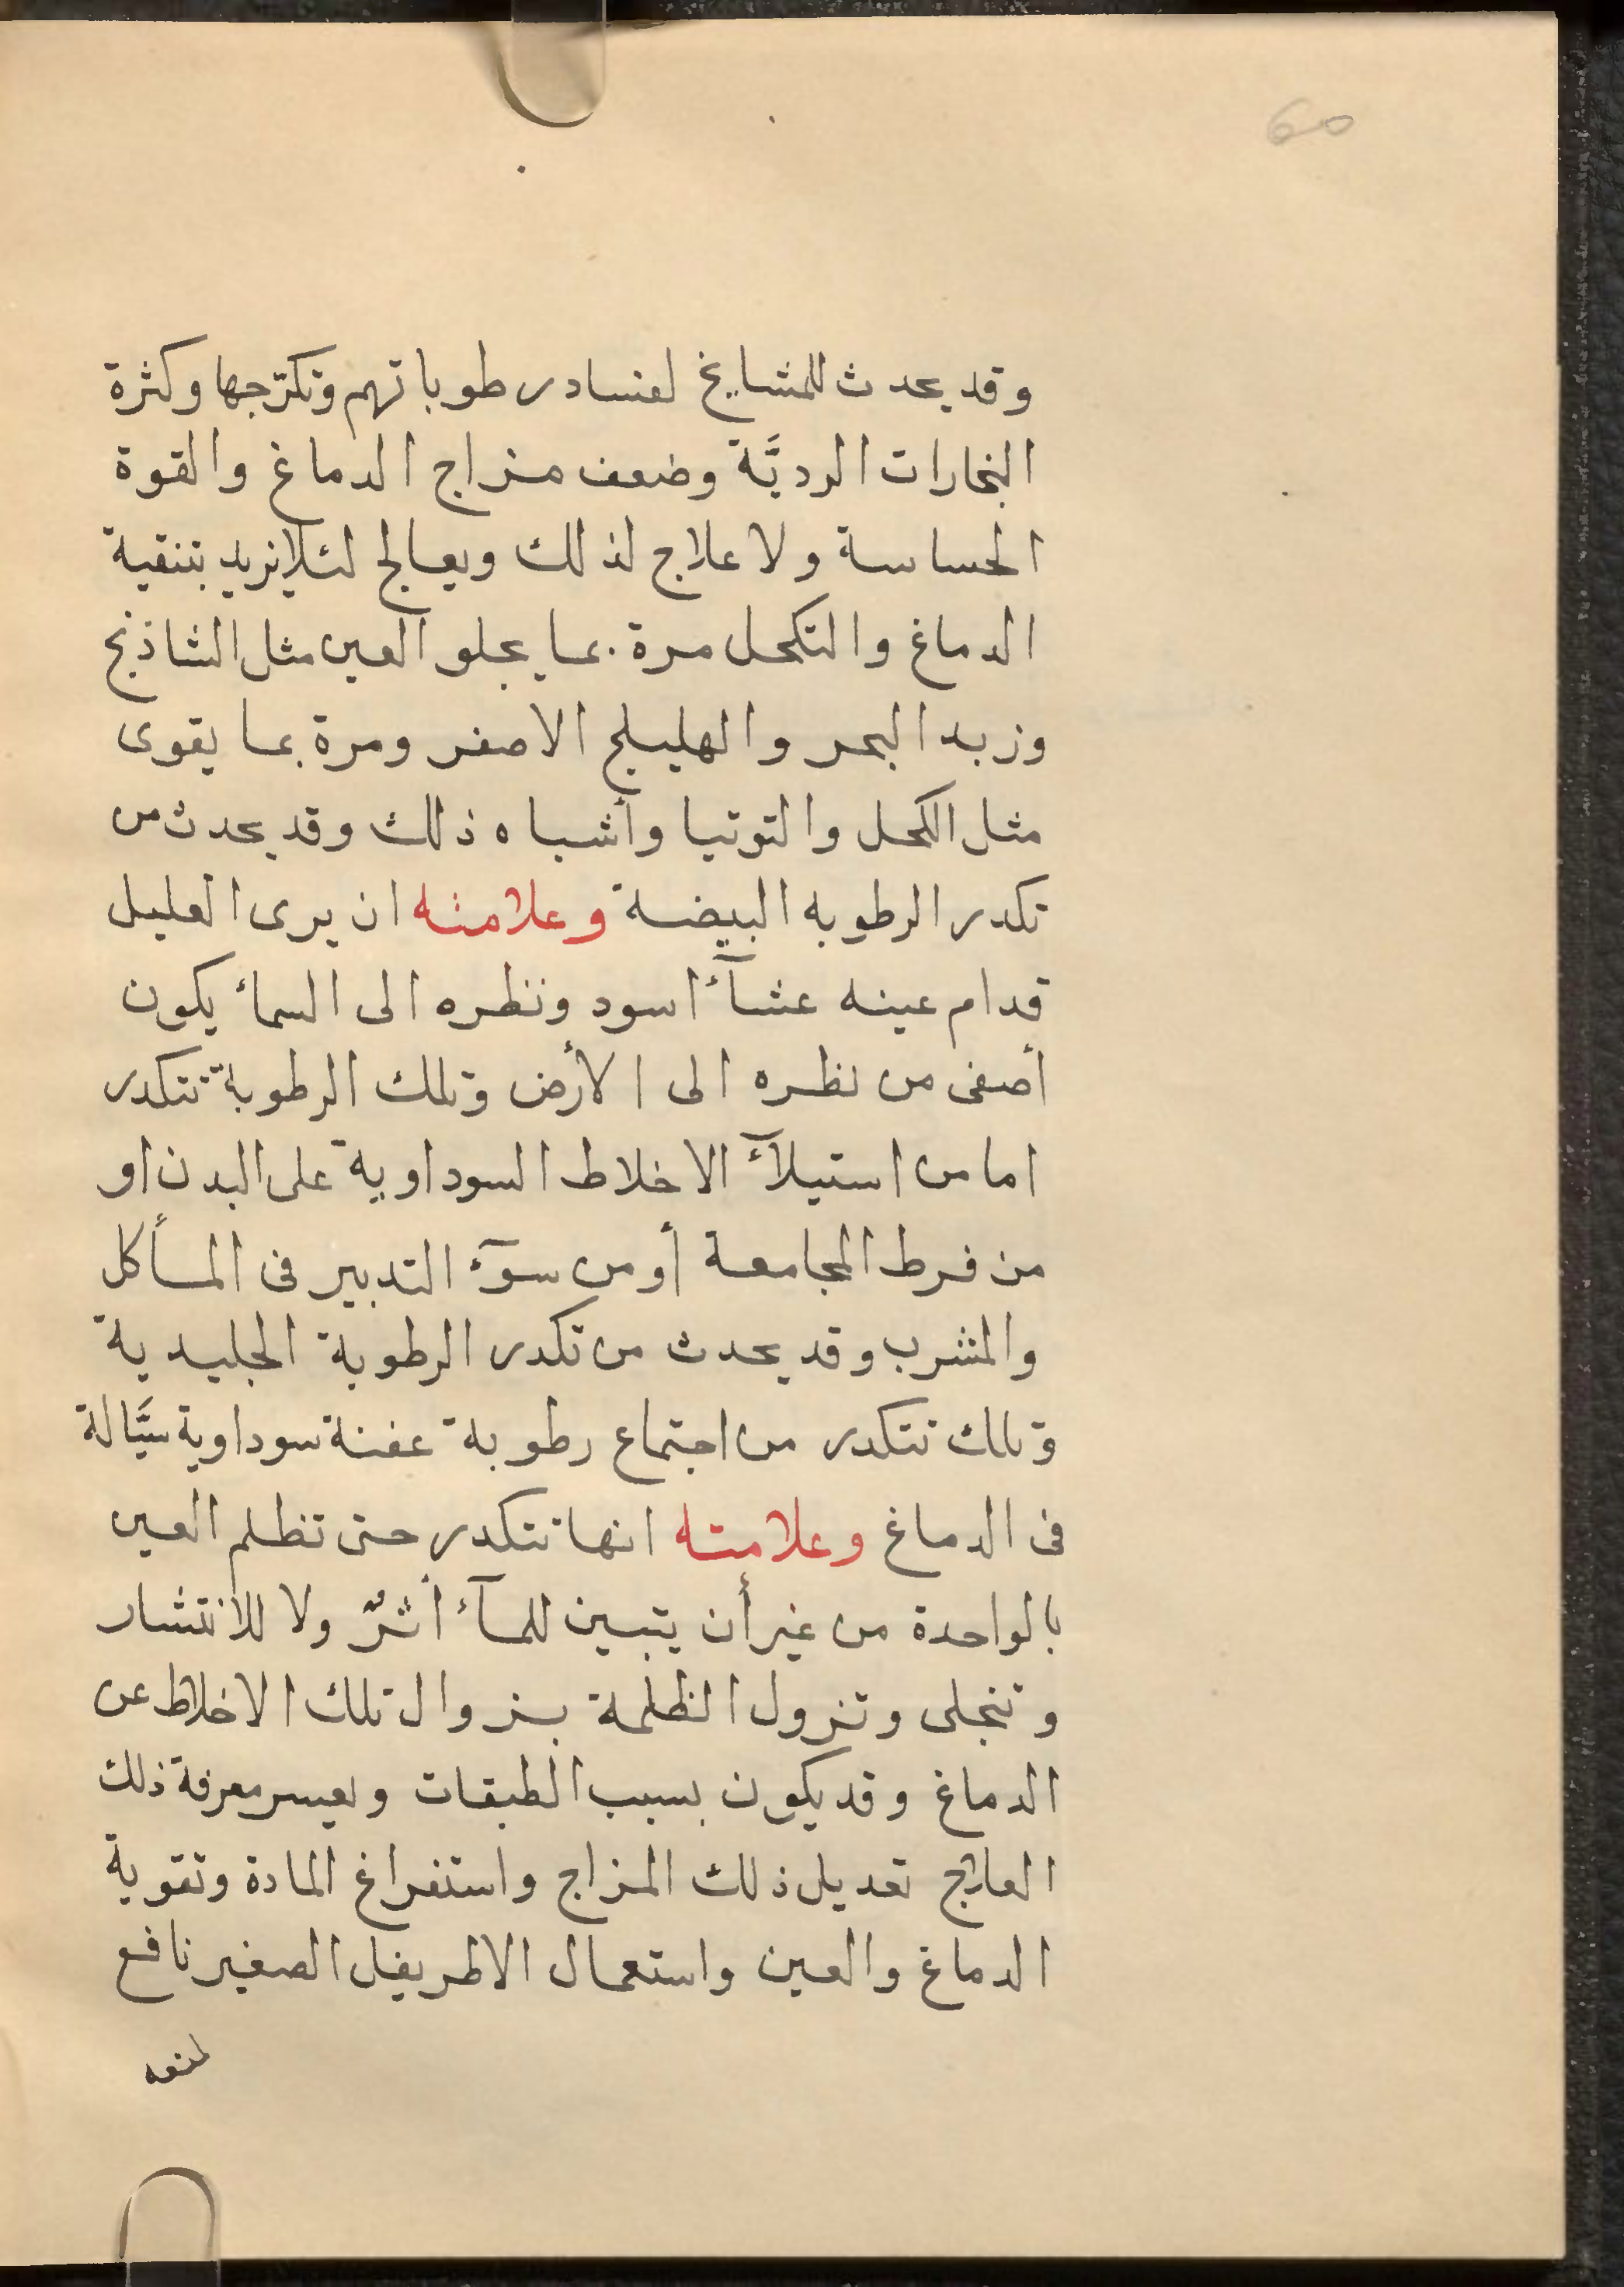 60
وقد يحدث للمشايخ لفساد رطوباتهم وتكرّجها وكثرة
البخارات الرديَّة وضعف مزاج الدماغ والقوة
الحساسة ولا علاج لذلك ويعالج لئلا يزيد بتنقية
الدماغ والتكحل مرة بما يجلو العين مثل الشاذنج
وزبد البحر والهليلج الاصفر ومرة بما يقوى
مثل الكحل والتوتيا وأشباه ذلك وقد يحدث من
تكدر الرطوبه البيضة وعلامته ان يرى العليل
قدام عينه عشآء اسود ونظره الى السماء يكون
أصفى من نظره الى الأرض وتلك الرطوبة تتكدر
اما من استيلآء الاخلاط السوداوية على البدن او
من فرط المجامعة أو من سوٓء التدبير فى المأكل
والمشرب وقد يحدث من تكدر الرطوبة الجليدية
وتلك تتكدر من اجتماع رطوبة عفنة سوداوية سيَّالة
فى الدماغ وعلامته انها تتكدر حتى تظلم العين
بالواحدة من غير أن يتبين للمآء أثرٌ ولا للانتشار
وتنجلى وتزول الظلمة بزوال تلك الاخلاط عن
الدماغ وقد يكون بسبب الطبقات ويعسر معرفة ذلك
العلاج تعديل ذلك المزاج واستفراغ المادة وتقوية
الدماغ والعين واستعمال الاطريفل الصغير نافع